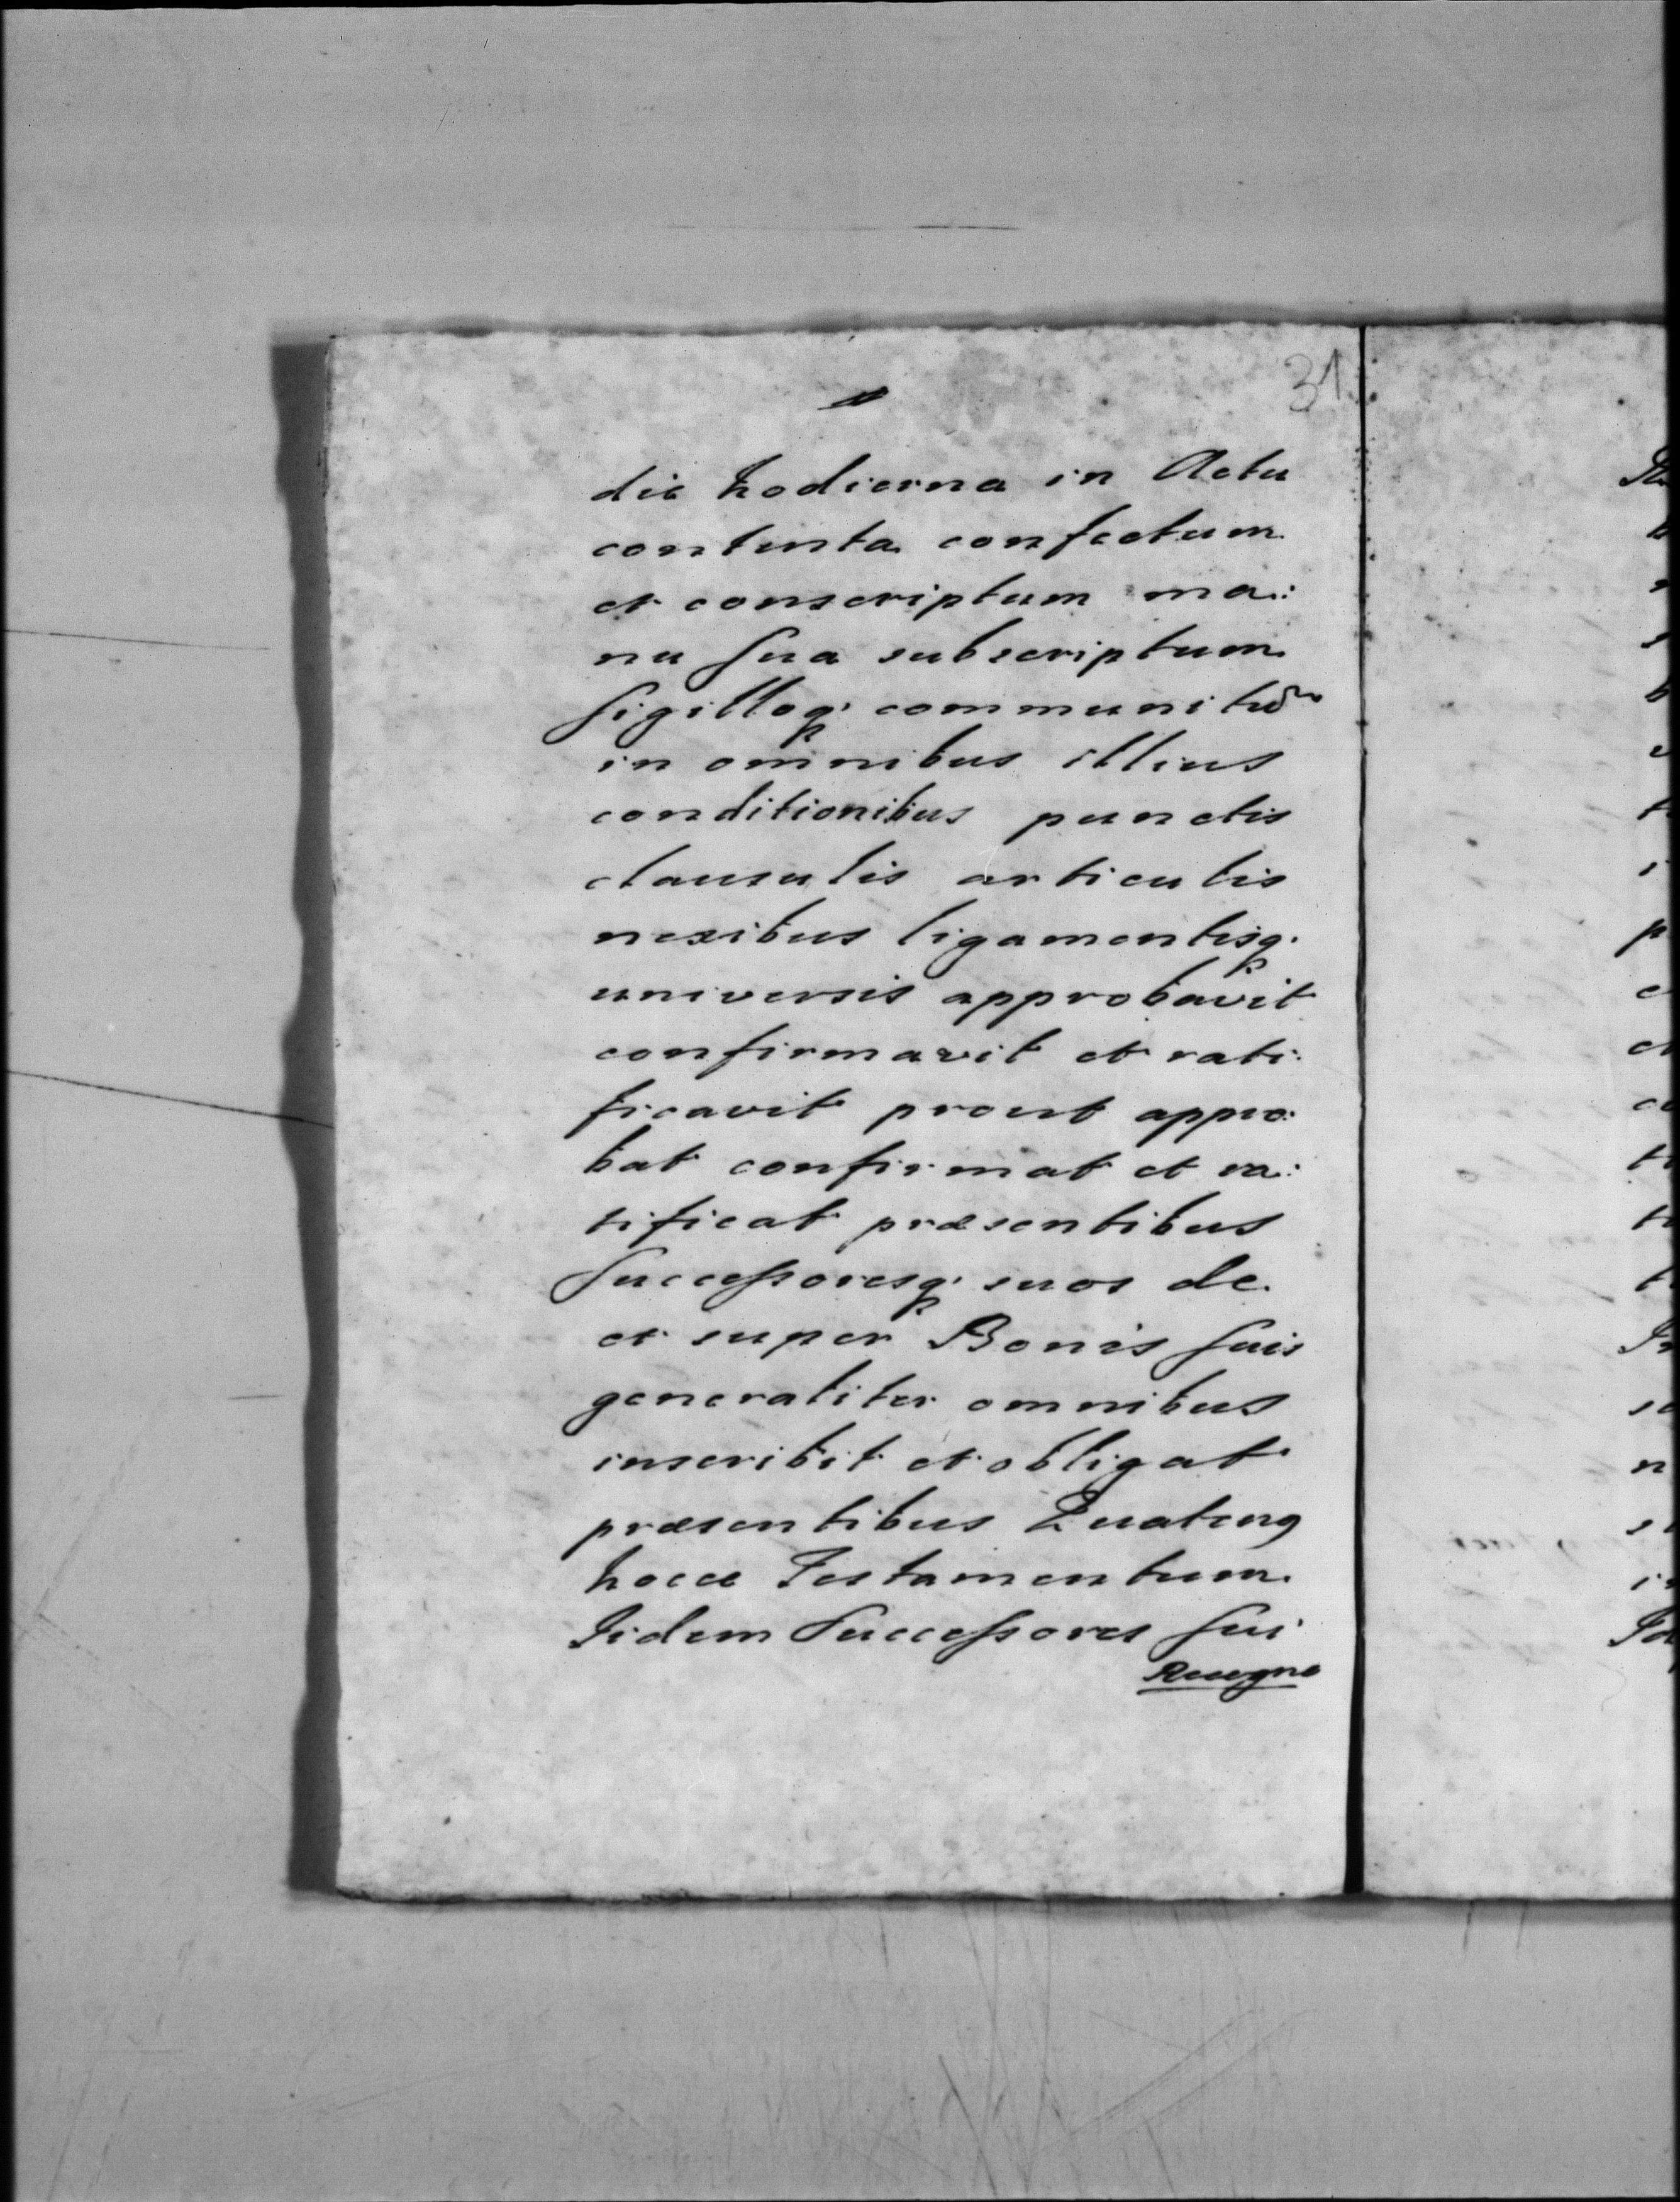 31
die hodierna in Actu
contenta confectum
et conscriptum ma:
nu sua subscriptum
sigilloq; communitũ
in omnibus illius
conditionibus punctis
clausulis articulis
nexibus ligamentisq;
universis approbavit
confirmavit et rati:
ficavit prout appro:
bat confirmat et ra:
tificat præsentibus
Successoresq; suos de
et super Bonis suis
generaliter omnibus
inscribit et obligat
præsentibus Quaten9
hocce Testamentum
Iidem Successores sui